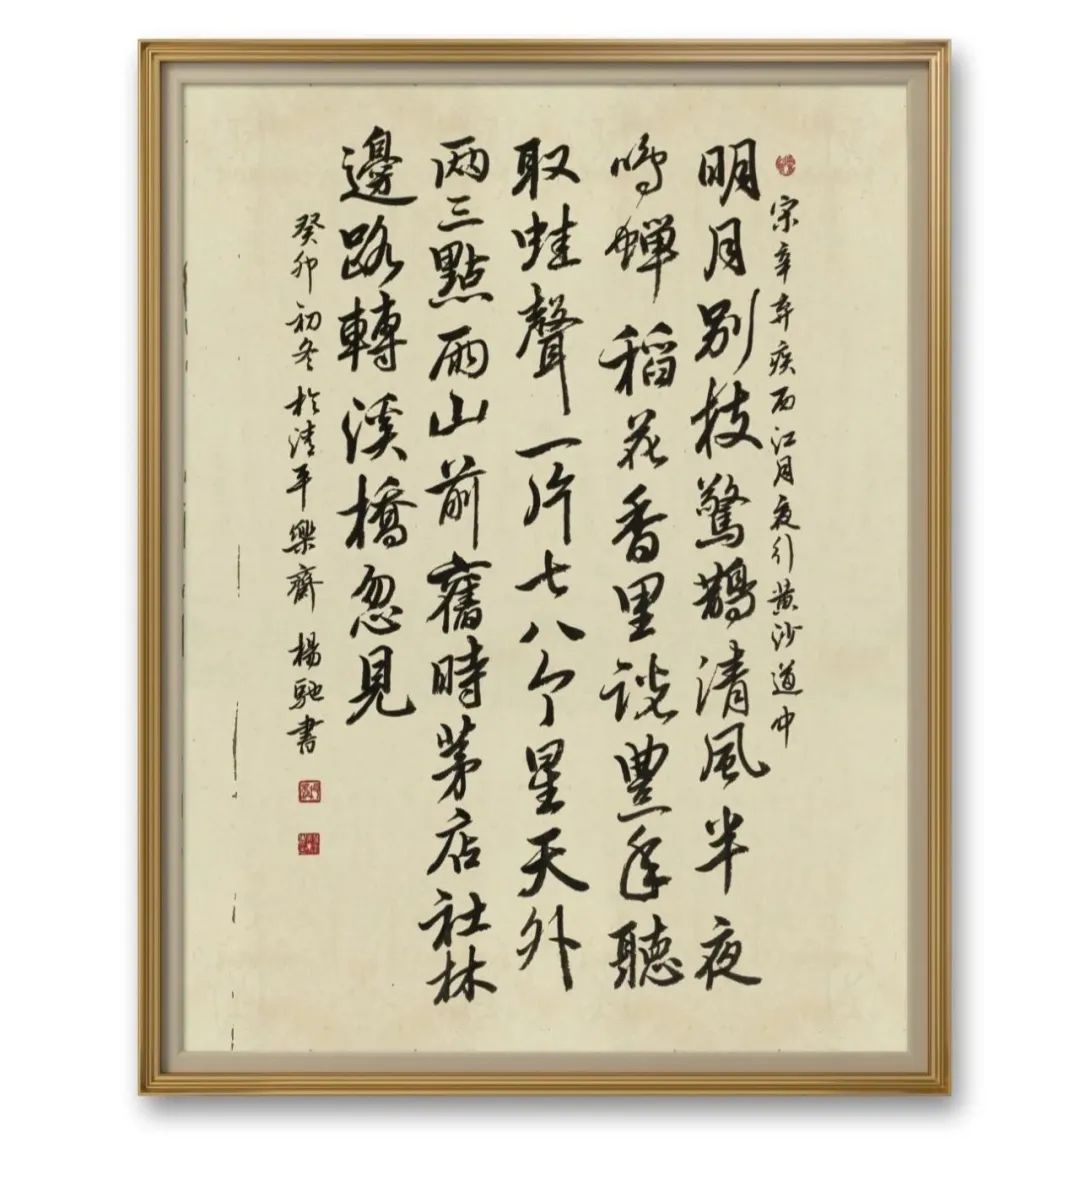 宋辛弃疾西江月夜行黄沙道中
明月别枝驚鵲清風半夜
鸣蝉稻花香里説豐年聽
取蛙聲一片七八个星天外
两三點雨山前舊時茅店社林
邊路轉溪橋忽見
癸卯初冬於清平樂齋 楊馳書